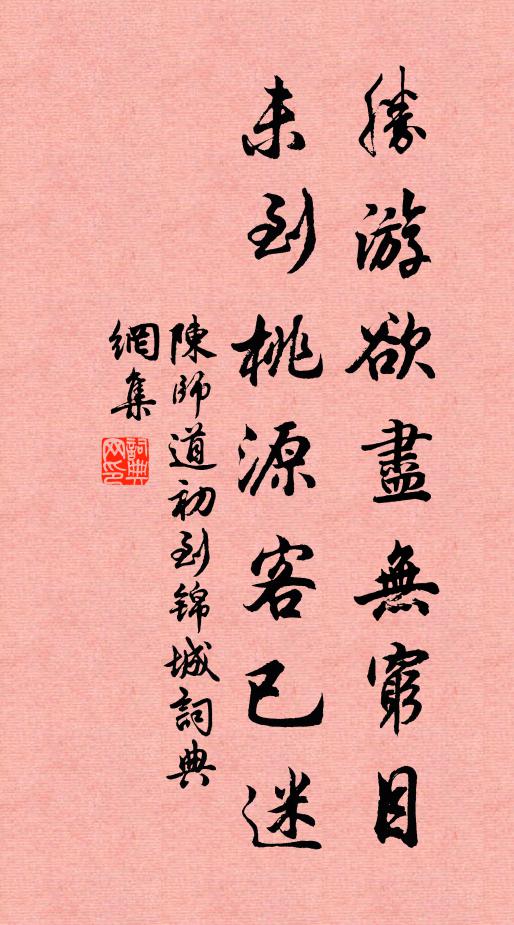 勝游欲盡無窮目
未到桃源客已迷
陳師道初到錦城詞典
網集
詞典
网印